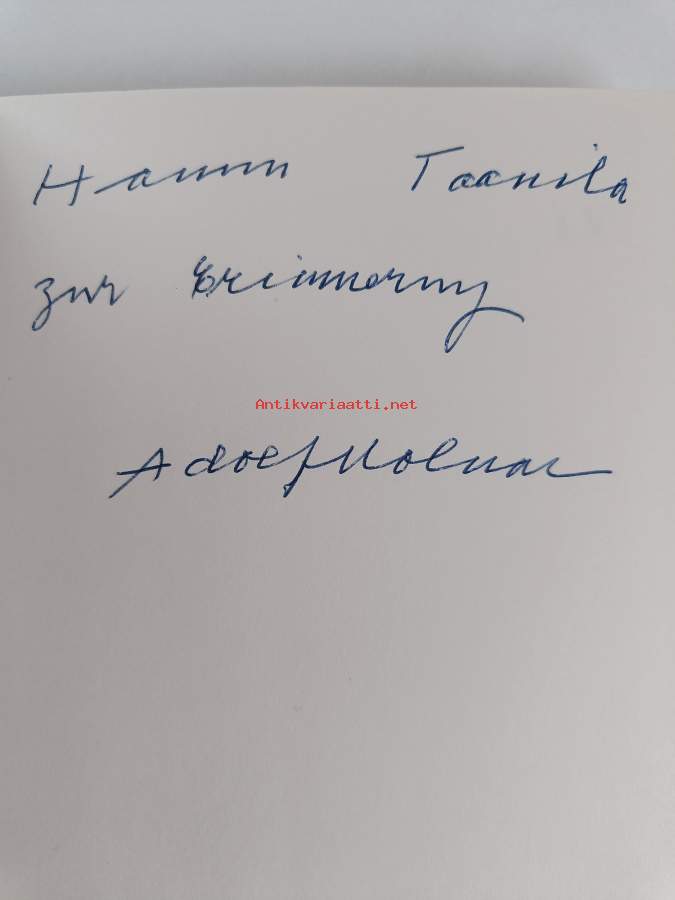 Hannu Taanila
zur Erinnerung
Antikvariaatti.net
Adolf Molnar